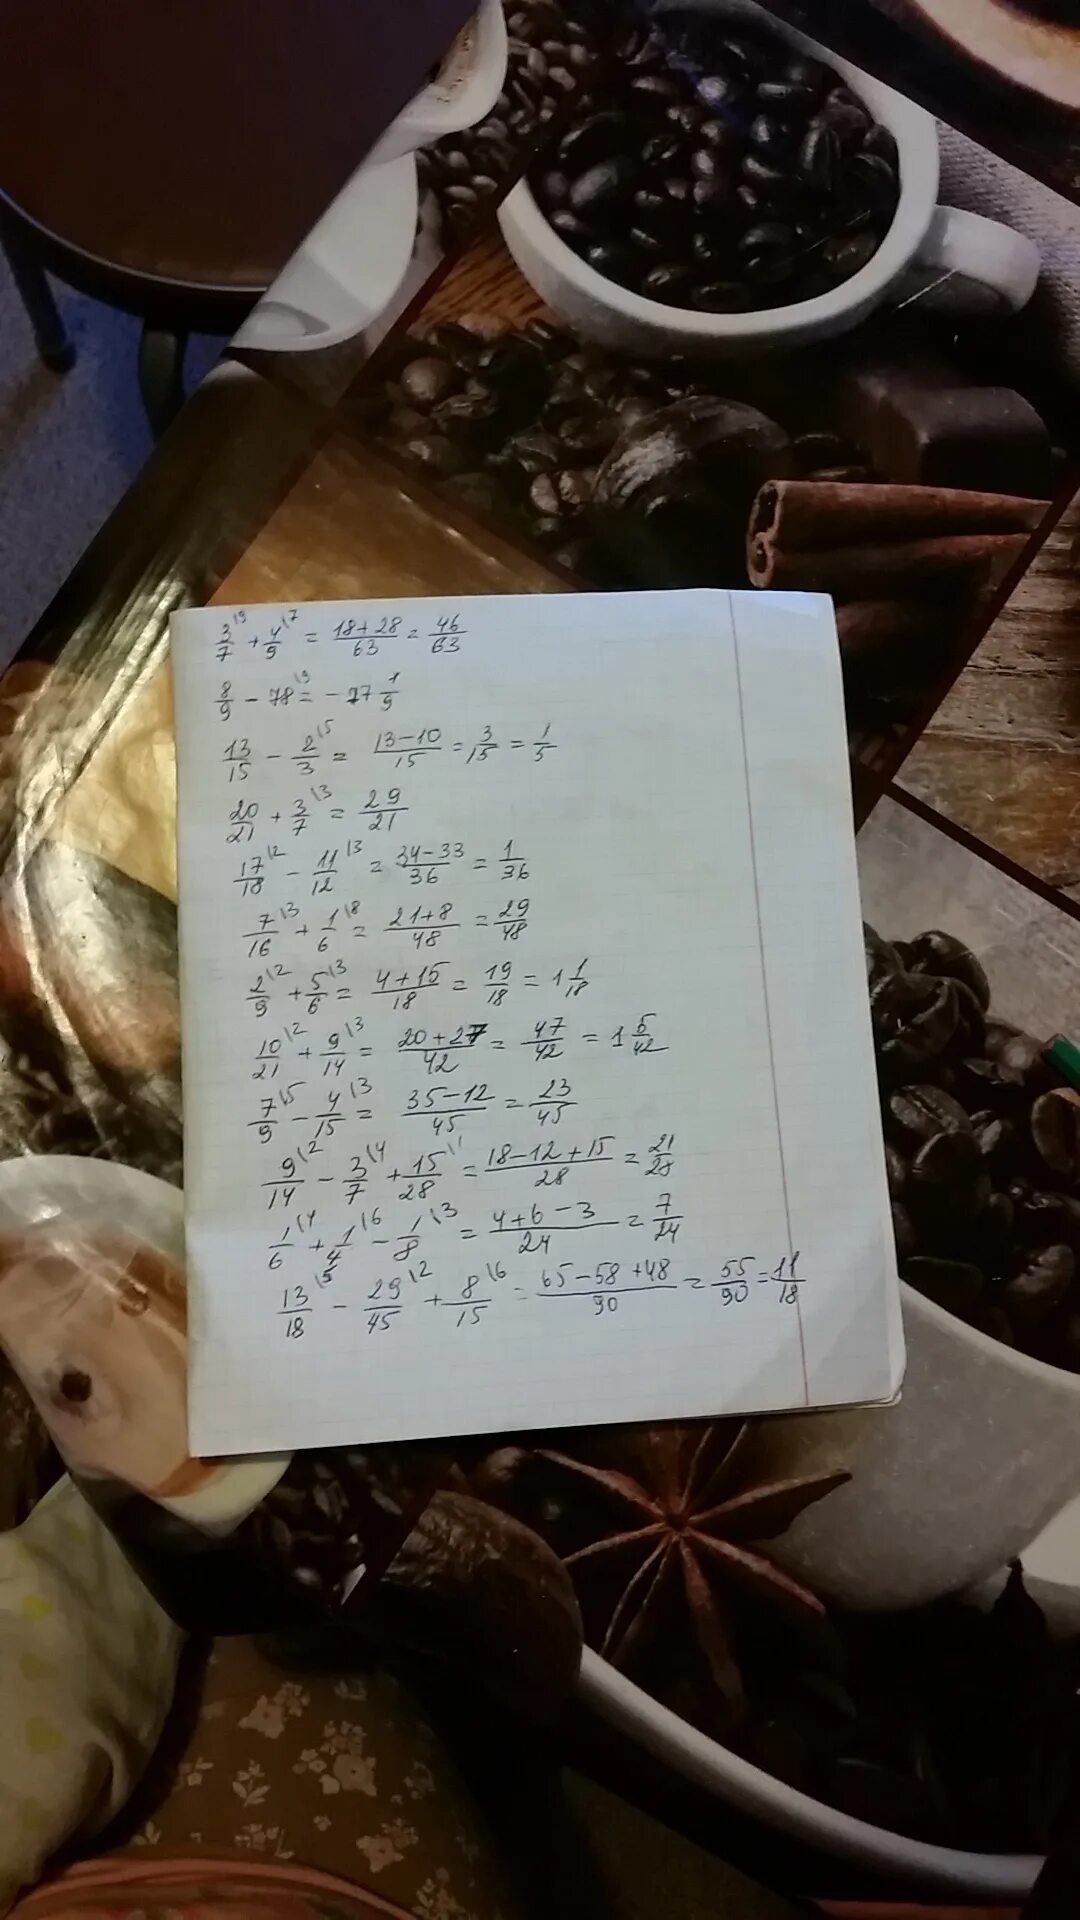 3/7\9 + 4/9\7 = 18+28/63 = 46/63
8/9 - 78\9 = - 77 1/9
13/15 - 2/3\5 = 13-10/15 = 3/15 = 1/5
20/21 + 3/7\3 = 29/21
17/18\2 - 11/12\3 = 34-33/36 = 1/36
7/16\3 + 1/6\8 = 21+8/48 = 29/48
2/9\2 + 5/6\3 = 4+15/18 = 19/18 = 1 1/18
10/21\2 + 9/14\3 = 20+27/42 = 47/42 = 1 5/42
7/9\5 - 4/15\3 = 35-12/45 = 23/45
9/14\2 - 3/7\4 + 15/28\1 = 18-12+15/28 = 21/28
1/6\4 + 1/4\6 - 1/8\3 = 4+6-3/24 = 7/24
13/18\5 - 29/45\2 + 8/15\6 = 65-58+48/90 = 55/90 = 11/18